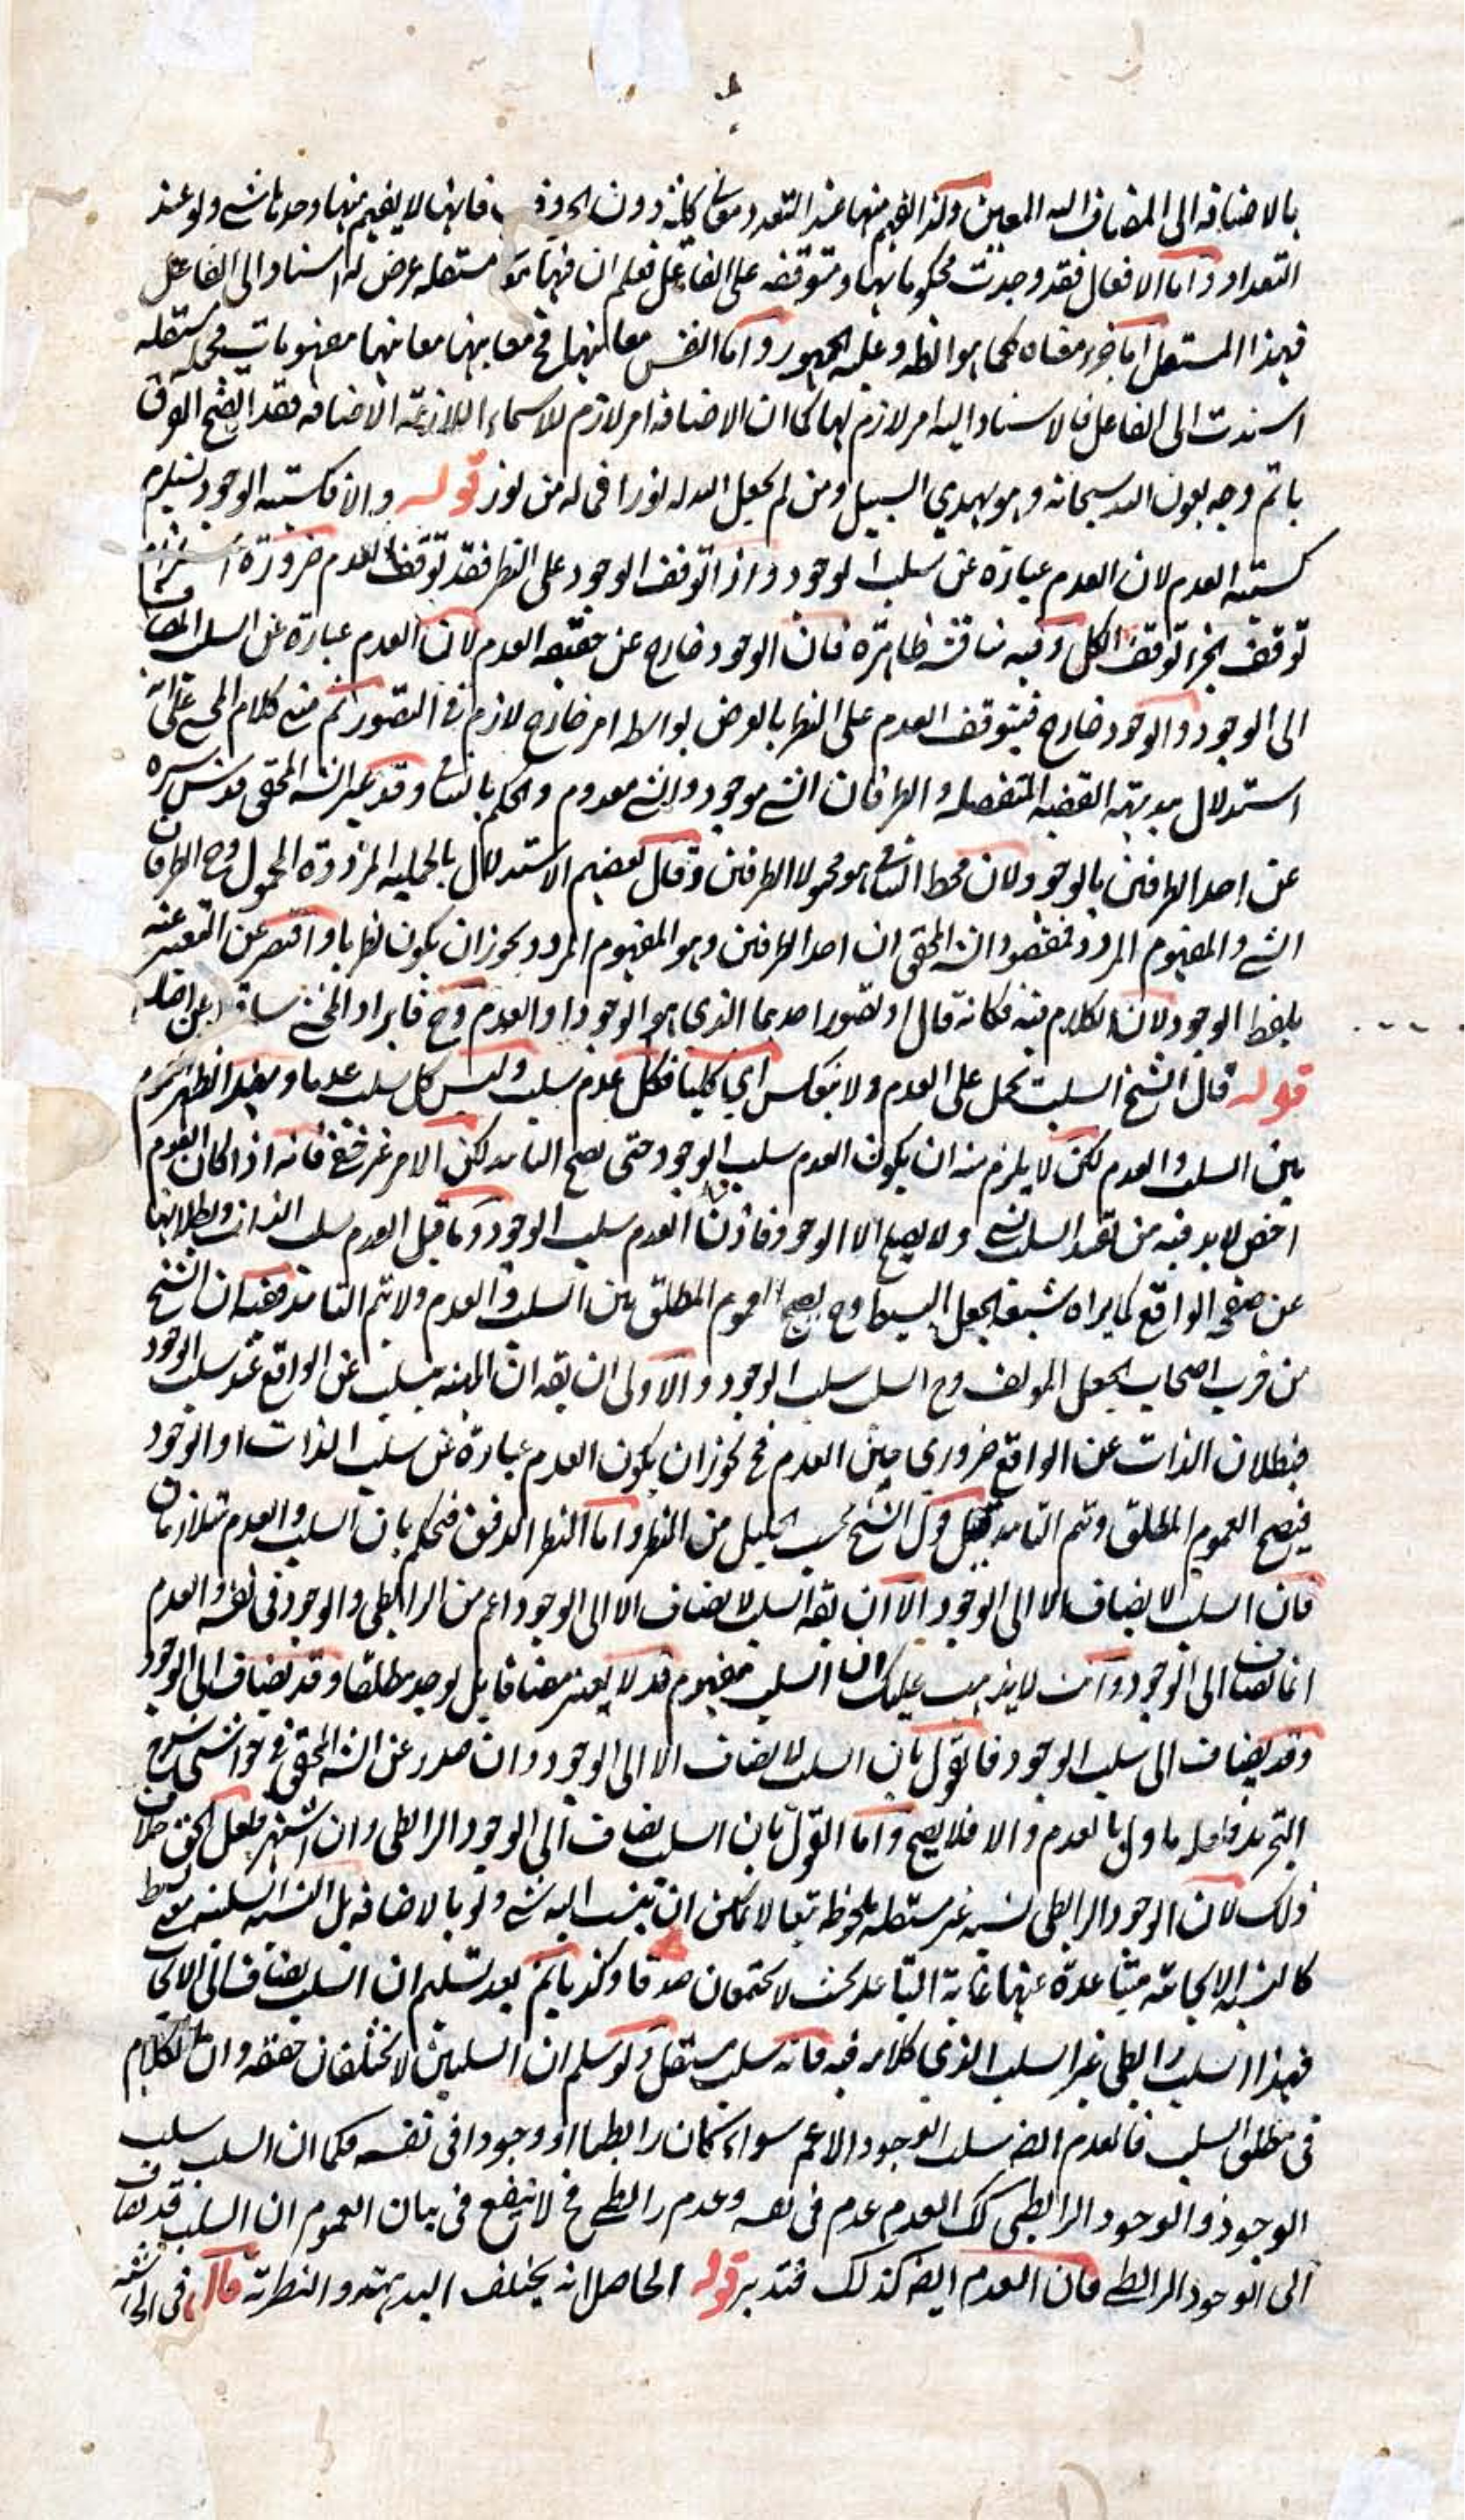 بالاضافه الى المضاف اليه المعين ولذا يفهم منها عند التعدد معان كلية دون الحروف فانها لا يفهم منها وحدها شے ولو عند
التعداد واما الافعال فقد وجدت محكوما بها ومتوقفه على الفاعل فعلم ان فيها مستقله عرض له اسناد الى الفاعل
فهذا المستقل اما جزء معناه كما هو الظ وعليه الجمهور واما نفس معانيها فح معانيها مفهومات مجمله مستقله
اسندت الى الفاعل فالاسناد اليه امر لازم لها كما ان الاضافه امر لازم للاسماء اللازمة الاضافه فقد اتضح الفرق
باتم وجه بعون الله سبحانه وهو يهدي السبيل ومن لم يجعل الله له نورا فما له من نور قوله والا فكسبيه الوجود يستلزم
كسبيه العدم لان العدم عبارة عن سلب الوجود واذا توقف الوجود على النظر فقد توقف العدم ضرورة استلزام
توقف الجزء توقف الكل وفيه مناقشه ظاهرة فان الوجود خارج عن حقيقه العدم لان العدم عبارة عن السلب المضاف
الى الوجود والوجود خارج فيتوقف العدم على النظر بالعرض بواسطه امر خارج لازم في التصور ثم مبنى كلام المحشى على انه
استدلال ببديهة القضيه المنفصله والطرفان الشے موجود والشے معدوم والحكم بالتنافى وقد عبر الشه المحقق قدس سره
عن احد الطرفين بالوجود لان محط التنافى هو محمولا الطرفين وقال بعضهم الاستدلال بالحمليه المرددة المحمول وح الطرفان
الشے والمفهوم المردد فمقصود الشه المحقق ان احد الطرفين وهو المفهوم المردد يجوز ان يكون نظريا واقتصر عن التعبير عنه
بلفظ الوجود لان الكلام فيه فكانه قال او تصور احدهما الذى هو الوجود او العدم وح فايراد المحشى ساقط عن اصله
قوله قال الشيخ السلب يحمل على العدم ولا ينعكس اي كليا فكل عدم سلب وليس كل سلب عدما
بين السلب والعدم لكن لا يلزم منه ان يكون العدم سلب الوجود حتى يصح التاييد لكن الامر غير خفى فانه اذا كان العدم
اخص لا بد فيه من تقييد السلب بشے ولا يصلح الا الوجود فاذن العدم سلب الوجود وما قيل العدم سلب الذات وبطلانها
عن صفحه الواقع كما يراه شيعة الجعل البسيط وح يصح العموم المطلق بين السلب والعدم ولا يتم التاييد ففيه ان الشيخ
من اصحاب الجعل المولف وح السلب سلب الوجود والاولى ان يقه ان المهيه يسلب عن الواقع عند سلب الوجود
فبطلان الذات عن الواقع ضروري حين العدم فح يجوز ان يكون العدم عبارة عن سلب الذات او الوجود
فيصح العموم المطلق ويتم التاييد قيل قول الشيخ بحسب الجليل من النظر واما النظر الدقيق فيحكم بان السلب والعدم متلازمان
فان السلب لا يضاف الا الى الوجود الا ان يقه السلب لا يضاف الا الى الوجود اعم من الرابطى والوجود فى نفسه والعدم
انما يضاف الى الوجود وانت لا يذهب عليك ان السلب مفهوم قد لا يعتبر مضافا بل يوجد مطلقا وقد يضاف الى الوجود
وقد يضاف الى سلب الوجود فالقول بان السلب لا يضاف الا الى الوجود وان صدر عن الشه المحقق فى حواشى شرح
التجريد فلعله ماول بالعدم والا فلا يصح واما القول بان السلب يضاف الى الوجود الرابطى وان اشتهر فلعل الحق خلاف
ذلك لان الوجود الرابطى نسبه غير مستقله ملحوظه تبعا لا يمكن ان ينسب اليه شے ولو بالاضافه بل النسبه السلبيه
كالنسبه الايجابيه متباعدة عنها غاية التباعد بحيث لا يجتمعان صدقا وكذبا ثم بعد تسليم ان السلب يضاف الى الايجاب
فهذا السلب رابطى غير السلب الذى كلامه فيه فانه سلب مستقل ولو سلم ان السلبين لا يختلفان حقيقه وان الكلام
فى مطلق السلب فالعدم ايضه سلب الوجود الاعم سواء كان رابطيا او وجودا فى نفسه فكما ان السلب سلب
الوجود والوجود الرابطى كك العدم عدم فى نفسه وعدم رابطے فح لا ينفع فى بيان العموم ان السلب قد يضاف
الى الوجود الرابطے فان العدم ايضه كذلك فتدبر قوله الحاصل انه يختلف البديهة والنظرية قال فى الحاشيه